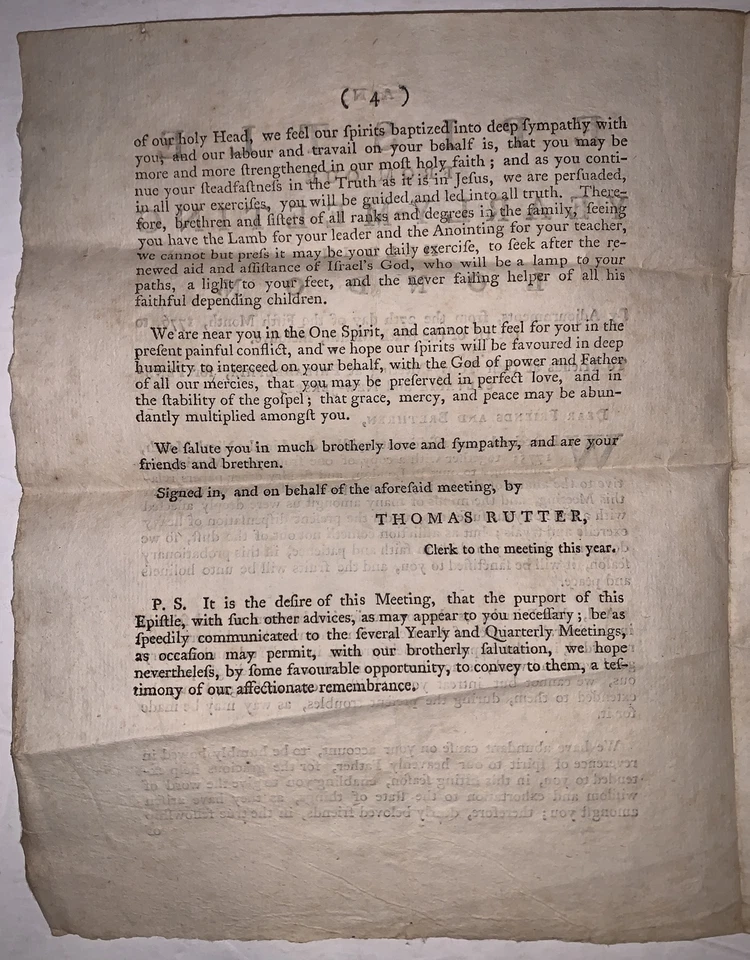 ( 4 )
of our holy Head, we feel our ſpirits baptized into deep ſympathy with
you; and our labour and travail on your behalf is, that you may be
more and more ſtrengthened in our moſt holy faith; and as you conti-
nue your ſteadfaſtneſs in the Truth as it is in Jeſus, we are perſuaded,
in all your exerciſes, you will be guided and led into all truth. There-
fore, brethren and ſiſters of all ranks and degrees in the family, ſeeing
you have the Lamb for your leader and the Anointing for your teacher,
we cannot but preſs it may be your daily exerciſe, to ſeek after the re-
newed aid and aſſiſtance of Iſrael's God, who will be a lamp to your
paths, a light to your feet, and the never failing helper of all his
faithful depending children.
We are near you in the One Spirit, and cannot but feel for you in the
preſent painful conflict, and we hope our ſpirits will be favoured in deep
humility to interceed on your behalf, with the God of power and Father
of all our mercies, that you may be preſerved in perfect love, and in
the ſtability of the goſpel; that grace, mercy, and peace may be abun-
dantly multiplied amongſt you.
We ſalute you in much brotherly love and ſympathy, and are your
friends and brethren.
Signed in, and on behalf of the aforeſaid meeting, by
THOMAS RUTTER,
Clerk to the meeting this year.
P. S. It is the deſire of this Meeting, that the purport of this
Epiſtle, with ſuch other advices, as may appear to you neceſſary; be as
ſpeedily communicated to the ſeveral Yearly and Quarterly Meetings,
as occaſion may permit, with our brotherly ſalutation, we hope
nevertheleſs, by ſome favourable opportunity, to convey to them, a teſ-
timony of our affectionate remembrance.